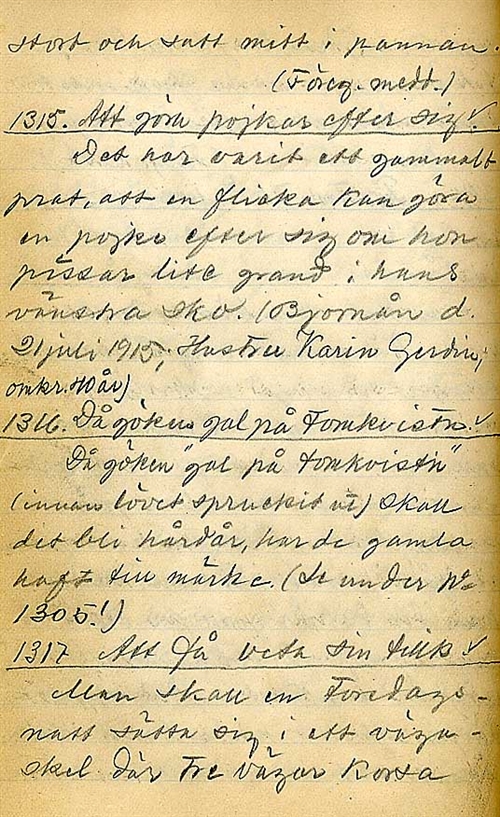 stort och satt mitt i pannan.
(Föreg. medd.)
1315. Att göra pojkar efter sig.
Det har varit ett gammalt
prat, att en flicka kan göra
en pojke efter sig om hon
pissar lite grand i hans
vänstra sko. (Bjornån d.
21 juli 1915; Hustru Karin Gerdin,
omkr. 40 år)
1316. Då göken gal på Tomkvistn.
Då göken "gal på tomkvistn"
(innan lövet spruckit ut) skall
det bli hårdår, har de gamla
haft till märke. (Se under No
1305!)
1317 Att få veta sin
Man skall en Toredags-
natt sätta sig i ett väga-
skel där tre vägar korsa